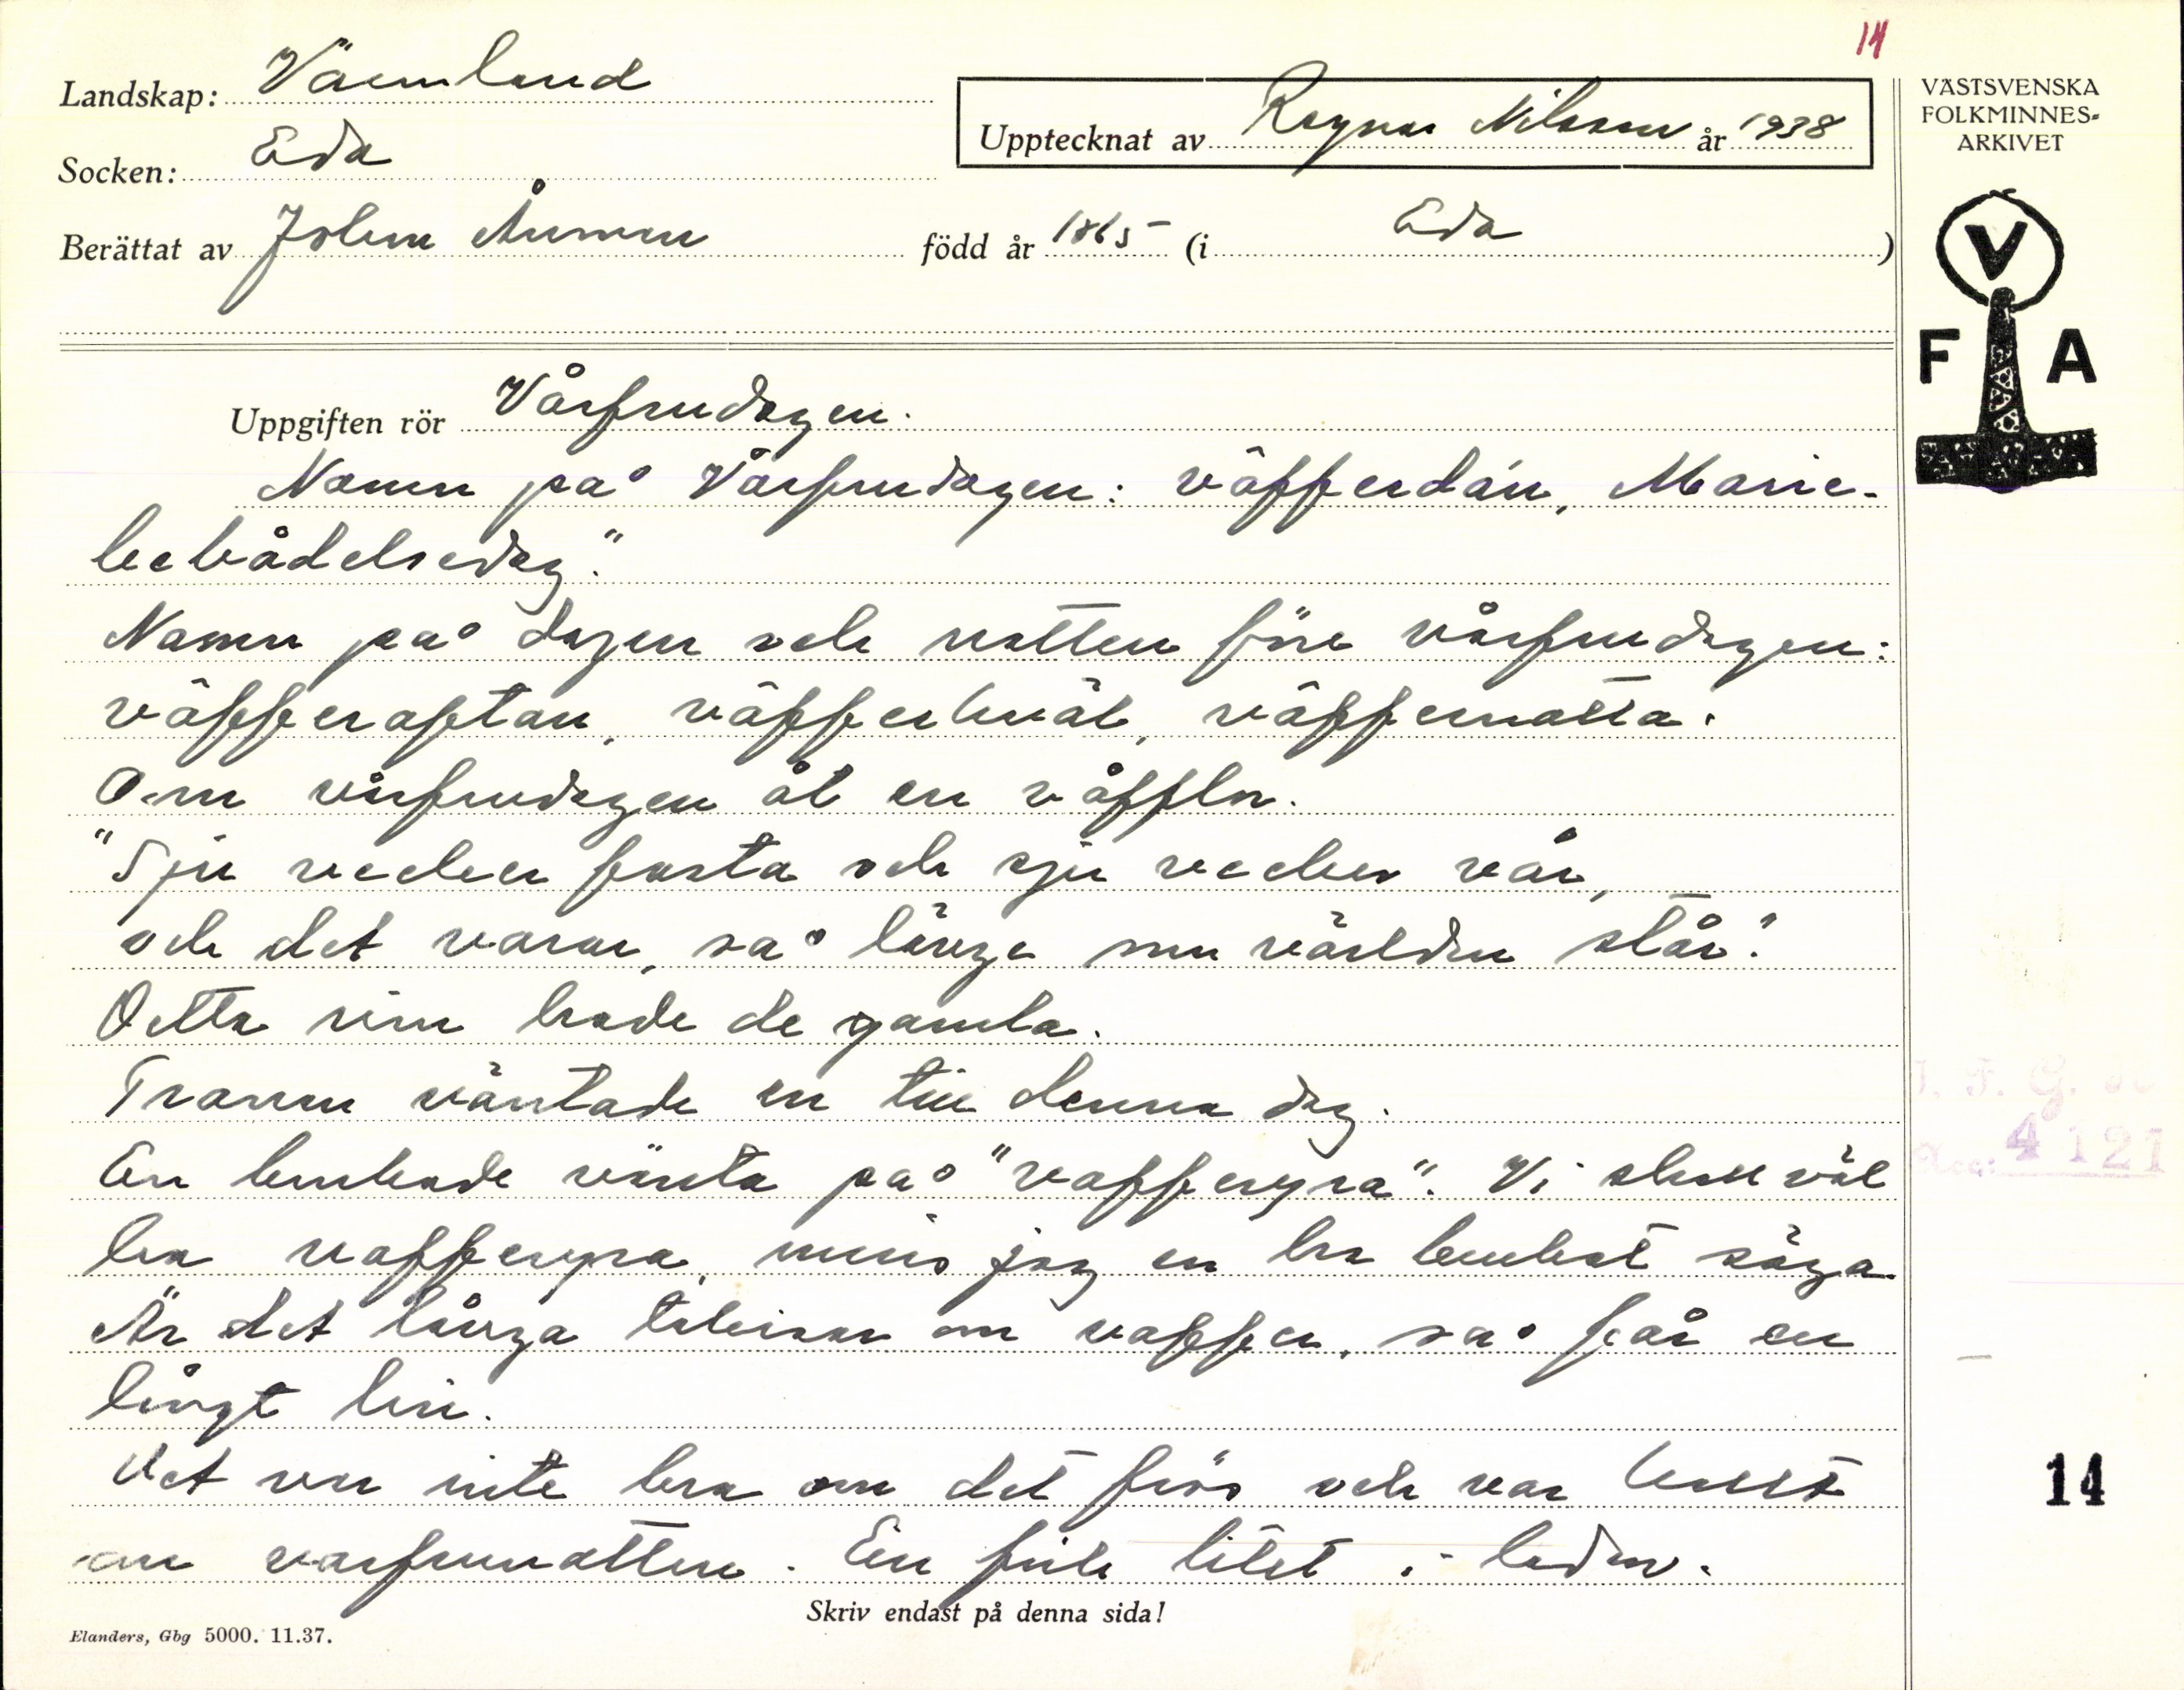 14
Landskap: Värmland
Upptecknat av Ragnar Nilsson år 1938
Socken: Eda
Berättat av Johan Åmann född år 1865 (i Eda)
VÄSTSVENSKA
FOLKMINNES=
ARKIVET
V
F A
Uppgiften rör Vårfrudagen.
Namn på Vårfrudagen: väfferdán, Marie-
bebådelsedag."
Namn på dagen och natten före vårfrudagen:
väfferaftan, väfferkväl, väffernatta.
Om vårfrudagen åt en våfflor.
"Sju veckor fasta och sju veckor vår,
och det varar, så länge som världen står."
Detta rim hade de gamla.
Tranan väntade en till denna dag.
En brukade vänta på "vafferyra". Vi skull väl
ha vafferyra, minns jag en ha brukat säga.
Är det långa takisar om vaffer, så får en
långt lin.
Det var inte bra om det frös och var kallt
om vårfrunatten. En fick litet i ladan.
Skriv endast på denna sida!
Elanders, Gbg 5000. 11.37.
4121
14